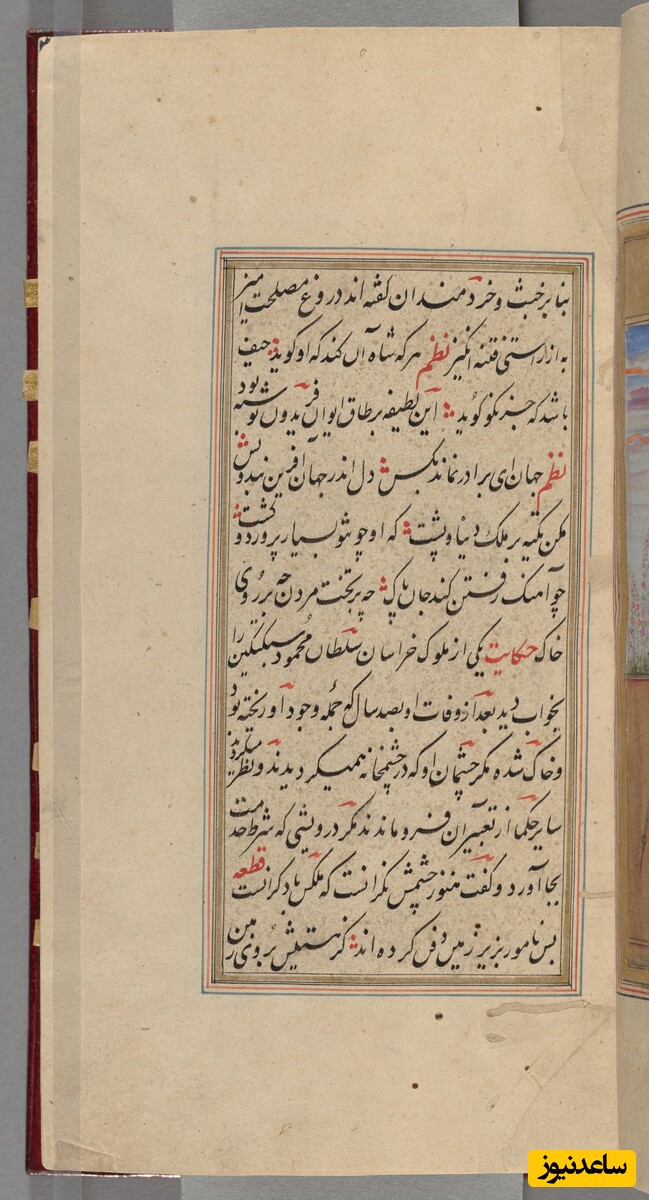 بنا بر خبث و خردمندان گفته اند دروغ مصلحت آمیز
به از راستی فتنه انگیز نظم هر که شاه آن کند که او گوید حیف
باشد که جز نکو گوید این لطیفه بر طاق ایوان فریدون نوشته بود
نظم جهان ای برادر نماند بکس دل اندر جهان آفرین بند و بس
مکن تکیه بر ملک دنیا و پشت که او چو تو بسیار پرورد و کشت
چو آهنگ رفتن کند جان پاک چه بر تخت مردن چه بر روی
خاک حکایت یکی از ملوک خراسان سلطان محمود سبکتکین را
بخواب دید بعد از وفات او بصد سال که جمله وجود او ریخته بود
و خاک شده مگر چشمان او که در چشمخانه همیگردیدند و نظر میکردند
سایر حکما از تعبیر آن فرو ماندند مگر درویشی که شرط خدمت
بجا آورد و گفت هنوز چشمش نگرانست که ملکش با دگرانست قطعه
بس نامور بزیر زمین دفن کرده اند کز هستیش بروی زمین
ساعدنیوز